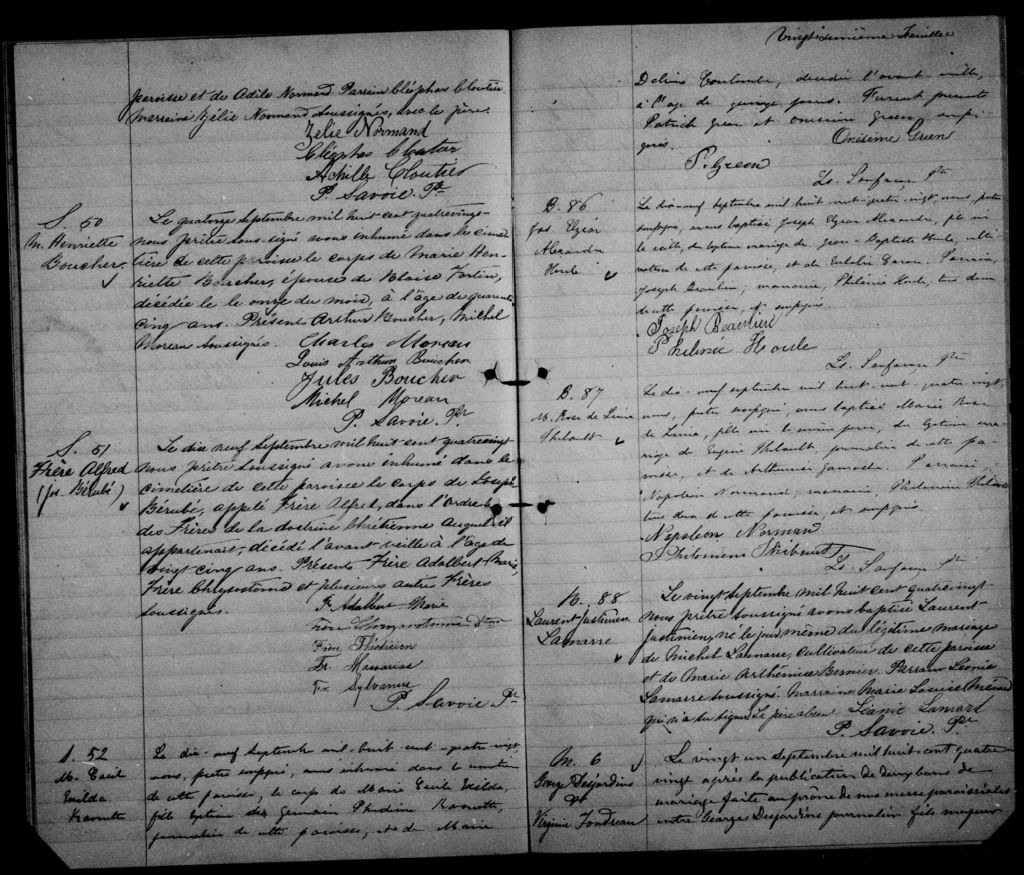 paroisse et de Adile Normand. Parrain Cléophas Cloutier
marraine Zélie Normand soussignés, avec le père.
Zelie Normand
Cléophas Cloutier
Achille Cloutier
P. Savoie. Ptr
S. 50
M. Henriette
Boucher.
Le quatorze septembre mil huit cent quatrevingt
nous prêtre sous-signé avons inhumé dans le cime
tière de cette paroisse le corps de Marie Hen
riette Boucher, épouse de Blaise Fortin,
décédée le le onze du mois, à l'âge de quarente
cinq ans. Présents Arthur Boucher, Michel
Moreau soussignés. Charles Moreau
Louis Arthur Boucher
Jules Boucher
Michel Moreau
P. Savoie. Ptr
S. 51
Frère Alfred
(jos. Bérubé)
Le dix neuf septembre mil huit cent quatrevingt
nous prêtre soussigné avons inhumé dans le
cimetière de cette paroisse le corps de Joseph
Bérube, appelé Frère Alfred, dans l'Ordre
des Frères de la doctrine Chrétienne auquel il
appartenait, décédé l'avant veille à l'âge de
vingt cinq ans. Présents Frère Adalbert Marie,
Frère Chrysostome et plusieurs autre Frères
soussignés.
Fr. Adalbert Marie
Frère
Fr.
Fr. Sylvanus
P. Savoie Ptr
S. 52
M.
Exilda
Le dix-neuf septembre mil-huit-cent-quatre-vingt
nous, prêtre soussigné, avons inhumé dans le cimetière
de cette paroisse, le corps de Marie Exilda,
fille légitime de Germain
journalier de cette paroisse, et de Marie
Vingt deuxième Feuillet
Delima Coulombe, décédé l'avant veille,
à l'age de quinze jours. Furent présents
Patrick Green et Onesime Green, soussi
gnés. Onésime Green
P. Green
Ptre
B. 86
Jos. Elzéar
Alexandre
Houle
Le dix-neuf septembre mil huit-cent-quatre-vingt, nous prêtre
soussigné, avons baptisé Joseph Elzéar Alexandre, né
la veille, du légitime mariage de Jean-Baptiste Houle, culti
vateur de cette paroisse, et de Eulalie Parrain,
Joseph marraine, Philinée Houle, tous deux
de cette paroisse, et soussignés.
Joseph
Philinée Houle
Ptre
B. 87
M. Rose de Lima
Thibault
Le dix-neuf septembre mil huit-cent-quatre-vingt,
nous, prêtre soussigné, avons baptisé Marie Rose
de Lima, née le même jour, du légitime ma
riage de Eugène Thibault, journalier de cette pa
roisse, et de Parrain,
Napoléon Normand; marraine, Philomène Thibault
tous deux de cette paroisse, et soussignés.
Napoléon Normand
Philomène Thibault
Ptr
B. 88
Laurent Justinien
Lamarre
Le vingt septembre mil huit cent quatrevingt
nous prêtre soussigné avons baptisé Laurent
Justinien, né le jour même du légitime mariage
de Michel Lamarre, cultivateur de cette paroisse
et de Marie Arthémise Bernier. Parrain Léonie
Lamarre soussigné. Marraine Marie Louise
qui n'a su signer. Le père absent. Léonie Lamarre
P. Savoie Ptr
M. 6
George Desjardins
&
Virginie Fondreau
Le vingt un septembre mil huit cent quatre
vingt après la publication de deux bans de
mariage faite au prône de nos messes paroissiales
entre George Desjardins journalier fils majeur